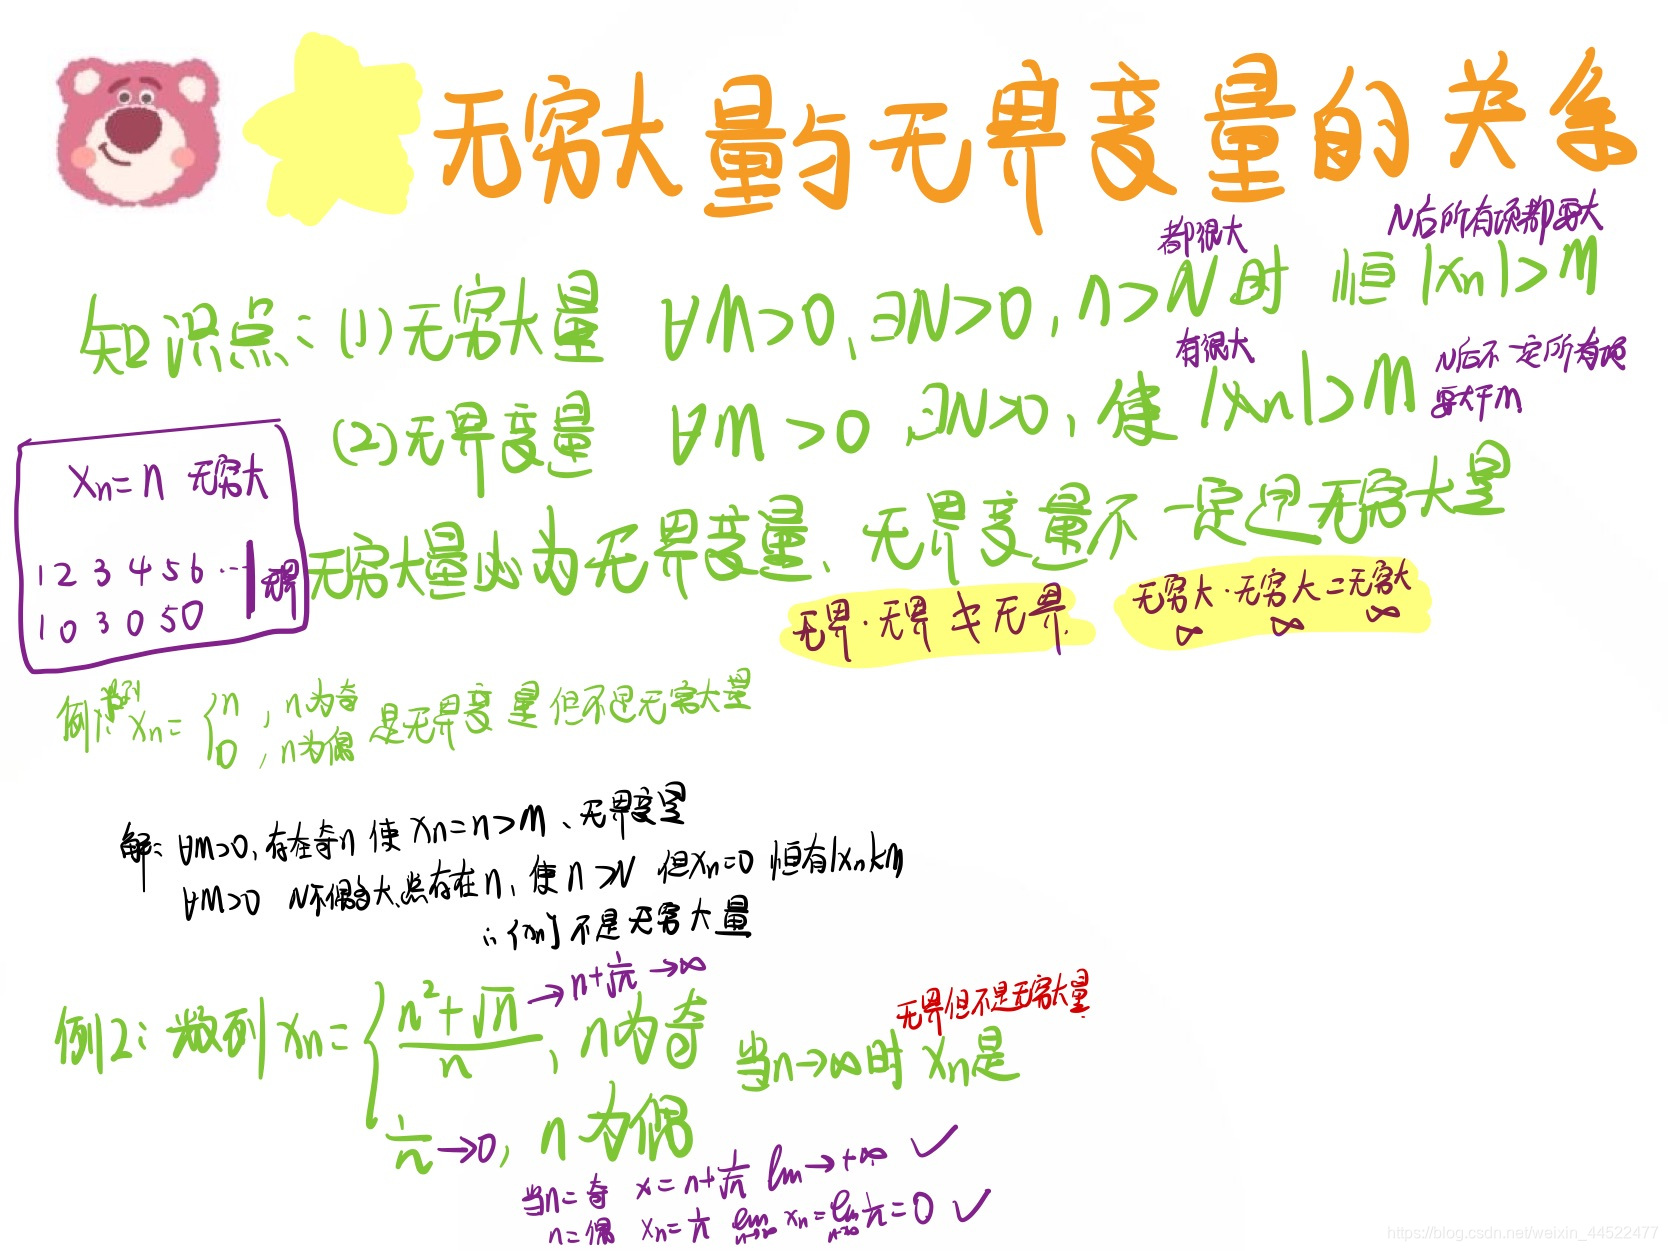 无穷大量与无界变量的关系
都很大
N后所有项都要大
知识点:(1)无穷大量 ∀M>0,∃N>0,n>N时 恒|xn|>M
有很大
N后不一定所有项
要大于M
(2)无界变量 ∀M>0 ∃N>0,使|xn|>M
xn=n 无穷大
1 2 3 4 5 6 … 无界
1 0 3 0 5 0
无穷大量必为无界变量、无界变量不一定是无穷大量
无界·无界 ≠ 无界
无穷大·无穷大=无穷大
∞ ∞ ∞
例1:数列 xn={n,n为奇
0,n为偶 是无界变量但不是无穷大量
解:∀M>0,存在奇n 使 xn=n>M、无界变量
∀M>0 N不偶多大,总存在n,使n>N 但xn=0 恒有|xn|<M
∴{xn}不是无穷大量
→n+1/√n→∞
例2:数列xn={n²+√n/n,n为奇
无界但不是无穷大量
当n→∞时 xn是
1/n→0,n为偶
当n=奇 x=n+1/√n lim→+∞ ✓
n=偶 xn=1/n lim n→∞ xn=lim n→∞ 1/n=0 ✓
https://blog.csdn.net/weixin_44522477